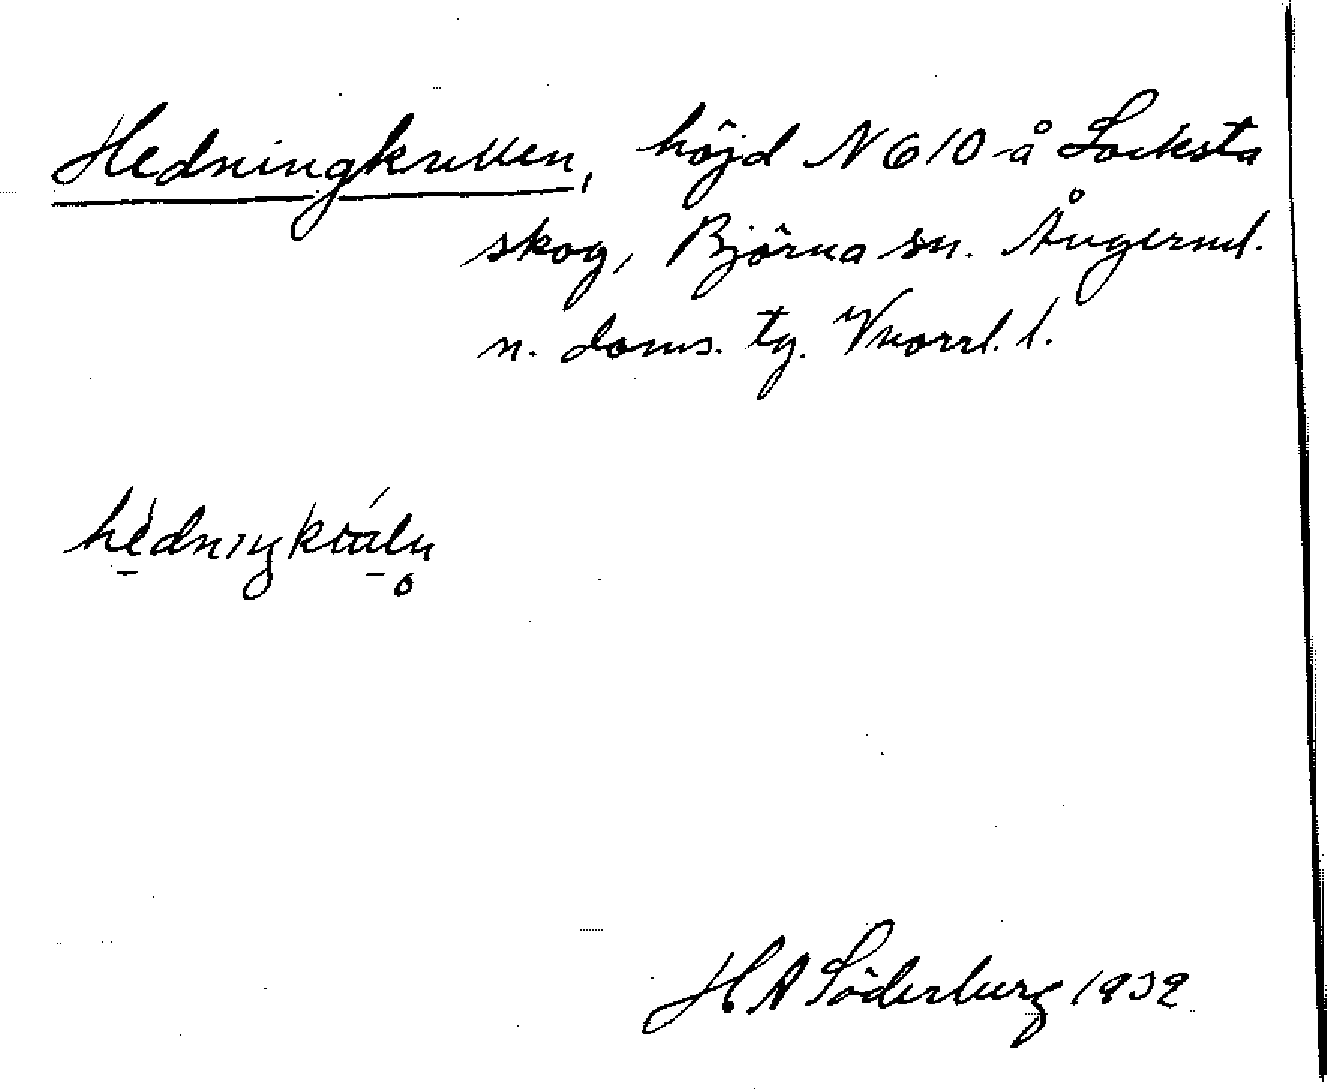 Hedningkullen, höjd N 610 å Locksta
skog, Björna sn. Ångerml.
n. doms. tg. Vnorrl. l.
H A Söderberg 1939